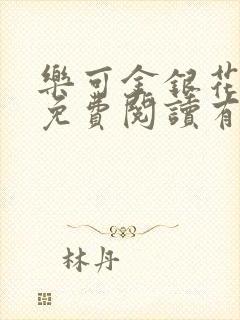 樂可金銀花
免費閱讀有
林丹